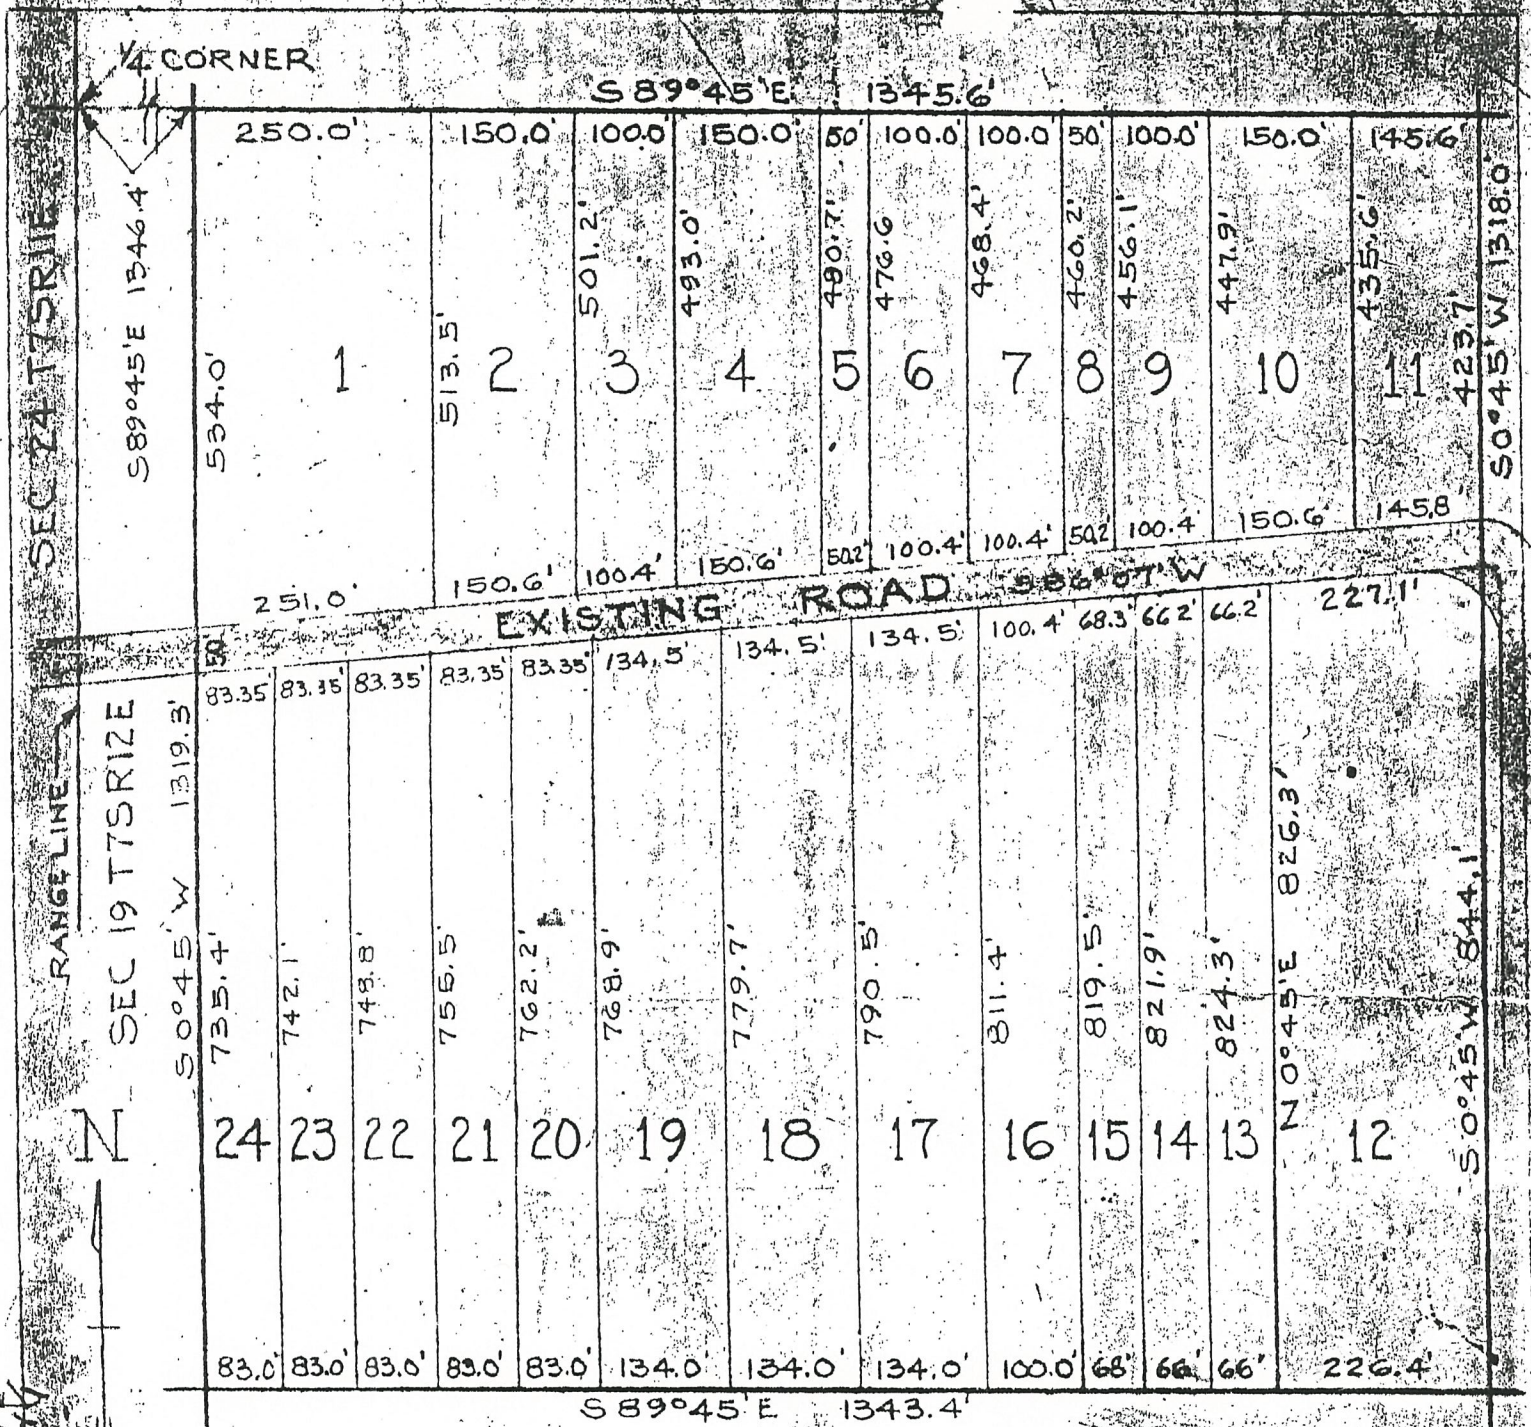 ¼ CORNER
S 89°45'E 1345.6'
250.0' 150.0' 100.0' 150.0' 50' 100.0' 100.0 50' 100.0' 150.0' 145.6'
SEC 24 T7SR11E
S89°45'E 1346.4'
534.0' 513.5' 501.2' 493.0' 480.7' 476.6 468.4' 460.2' 456.1' 447.9' 435.6' 423.7'
S0°45'W 1318.0'
1 2 3 4 5 6 7 8 9 10 11
251.0' 150.6' 100.4' 150.6' 50.2' 100.4' 100.4' 50.2' 100.4' 150.6' 145.8'
EXISTING ROAD S86°07'W
50'
83.35' 83.35' 83.35' 83.35' 83.35' 134.5' 134.5' 134.5' 100.4' 68.3' 66.2' 66.2' 227.1'
RANGE LINE
SEC 19 T7SR12E
S0°45'W 1319.3'
735.4' 742.1' 748.8' 755.5' 762.2' 768.9' 779.7' 790.5' 811.4' 819.5' 821.9' 824.3'
N0°45'E 826.3'
S0°45'W 844.1'
N
24 23 22 21 20 19 18 17 16 15 14 13 12
83.0' 83.0' 83.0' 83.0' 83.0' 134.0' 134.0' 134.0' 100.0' 68' 66' 66' 226.4'
S 89°45'E 1343.4'